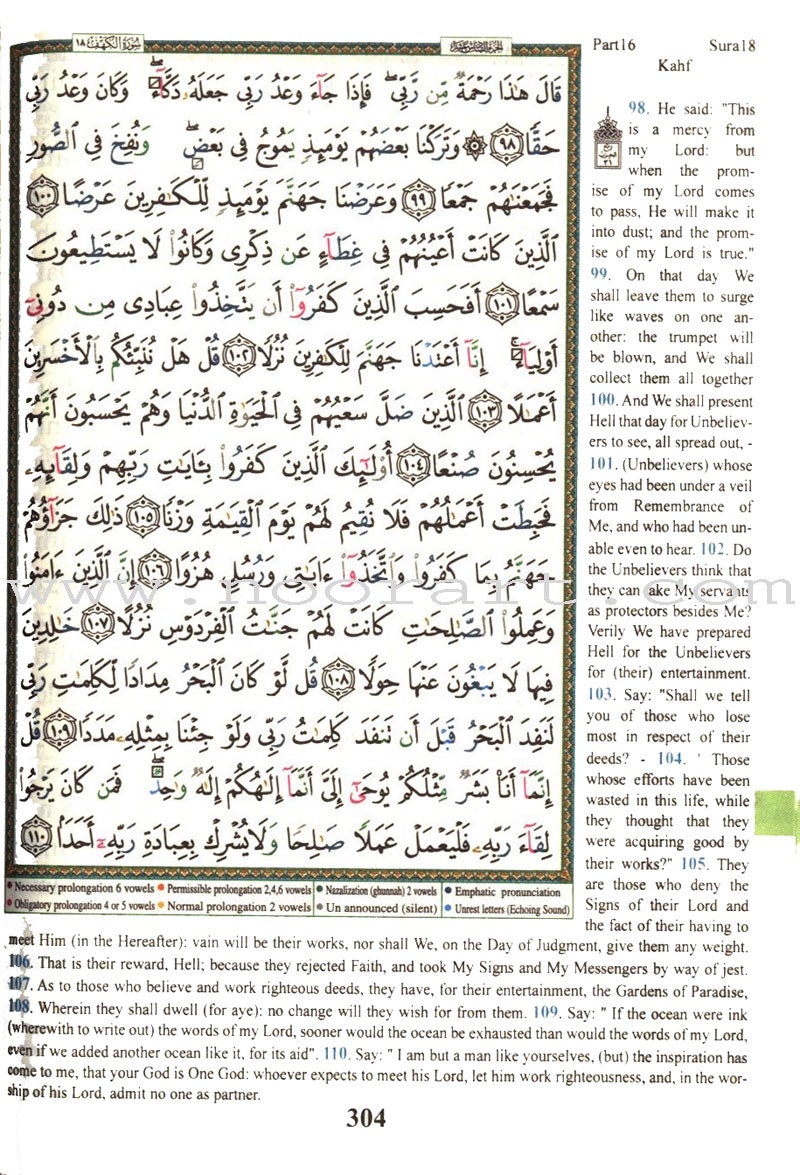 سُورَةُ الكَهْفِ ١٨
Part16 Sura18
Kahf
قَالَ هَٰذَا رَحْمَةٌ مِّن رَّبِّي ۖ فَإِذَا جَآءَ وَعْدُ رَبِّي جَعَلَهُۥ دَكَّآءَ ۖ وَكَانَ وَعْدُ رَبِّي
حَقًّا ٩٨ ۞ وَتَرَكْنَا بَعْضَهُمْ يَوْمَئِذٍ يَمُوجُ فِي بَعْضٍ ۖ وَنُفِخَ فِي ٱلصُّورِ
فَجَمَعْنَٰهُمْ جَمْعًا ٩٩ وَعَرَضْنَا جَهَنَّمَ يَوْمَئِذٍ لِّلْكَٰفِرِينَ عَرْضًا ١٠٠
ٱلَّذِينَ كَانَتْ أَعْيُنُهُمْ فِي غِطَآءٍ عَن ذِكْرِي وَكَانُوا۟ لَا يَسْتَطِيعُونَ
سَمْعًا ١٠١ أَفَحَسِبَ ٱلَّذِينَ كَفَرُوٓا۟ أَن يَتَّخِذُوا۟ عِبَادِي مِن دُونِيٓ
أَوْلِيَآءَ ۚ إِنَّآ أَعْتَدْنَا جَهَنَّمَ لِلْكَٰفِرِينَ نُزُلًا ١٠٢ قُلْ هَلْ نُنَبِّئُكُم بِٱلْأَخْسَرِينَ
أَعْمَٰلًا ١٠٣ ٱلَّذِينَ ضَلَّ سَعْيُهُمْ فِي ٱلْحَيَوٰةِ ٱلدُّنْيَا وَهُمْ يَحْسَبُونَ أَنَّهُمْ
يُحْسِنُونَ صُنْعًا ١٠٤ أُو۟لَٰٓئِكَ ٱلَّذِينَ كَفَرُوا۟ بِـَٔايَٰتِ رَبِّهِمْ وَلِقَآئِهِۦ
فَحَبِطَتْ أَعْمَٰلُهُمْ فَلَا نُقِيمُ لَهُمْ يَوْمَ ٱلْقِيَٰمَةِ وَزْنًا ١٠٥ ذَٰلِكَ جَزَآؤُهُمْ
جَهَنَّمُ بِمَا كَفَرُوا۟ وَٱتَّخَذُوٓا۟ ءَايَٰتِي وَرُسُلِي هُزُوًا ١٠٦ إِنَّ ٱلَّذِينَ ءَامَنُوا۟
وَعَمِلُوا۟ ٱلصَّٰلِحَٰتِ كَانَتْ لَهُمْ جَنَّٰتُ ٱلْفِرْدَوْسِ نُزُلًا ١٠٧ خَٰلِدِينَ
فِيهَا لَا يَبْغُونَ عَنْهَا حِوَلًا ١٠٨ قُل لَّوْ كَانَ ٱلْبَحْرُ مِدَادًا لِّكَلِمَٰتِ رَبِّي
لَنَفِدَ ٱلْبَحْرُ قَبْلَ أَن تَنفَدَ كَلِمَٰتُ رَبِّي وَلَوْ جِئْنَا بِمِثْلِهِۦ مَدَدًا ١٠٩ قُلْ
إِنَّمَآ أَنَا۠ بَشَرٌ مِّثْلُكُمْ يُوحَىٰٓ إِلَيَّ أَنَّمَآ إِلَٰهُكُمْ إِلَٰهٌ وَٰحِدٌ ۖ فَمَن كَانَ يَرْجُوا۟
لِقَآءَ رَبِّهِۦ فَلْيَعْمَلْ عَمَلًا صَٰلِحًا وَلَا يُشْرِكْ بِعِبَادَةِ رَبِّهِۦٓ أَحَدًۢا ١١٠
Necessary prolongation 6 vowels Permissible prolongation 2,4,6 vowels Nazalization (ghunnah) 2 vowels Emphatic pronunciation
Obligatory prolongation 4 or 5 vowels Normal prolongation 2 vowels Un announced (silent) Unrest letters (Echoing Sound)
98. He said: "This
is a mercy from
my Lord: but
when the prom-
ise of my Lord comes
to pass, He will make it
into dust; and the prom-
ise of my Lord is true."
99. On that day We
shall leave them to surge
like waves on one an-
other: the trumpet will
be blown, and We shall
collect them all together
100. And We shall present
Hell that day for Unbeliev-
ers to see, all spread out, -
101. (Unbelievers) whose
eyes had been under a veil
from Remembrance of
Me, and who had been un-
able even to hear. 102. Do
the Unbelievers think that
they can ake My servants
as protectors besides Me?
Verily We have prepared
Hell for the Unbelievers
for (their) entertainment.
103. Say: "Shall we tell
you of those who lose
most in respect of their
deeds? - 104. ' Those
whose efforts have been
wasted in this life, while
they thought that they
were acquiring good by
their works?" 105. They
are those who deny the
Signs of their Lord and
the fact of their having to
meet Him (in the Hereafter): vain will be their works, nor shall We, on the Day of Judgment, give them any weight.
106. That is their reward, Hell; because they rejected Faith, and took My Signs and My Messengers by way of jest.
107. As to those who believe and work righteous deeds, they have, for their entertainment, the Gardens of Paradise,
108. Wherein they shall dwell (for aye): no change will they wish for from them. 109. Say: " If the ocean were ink
(wherewith to write out) the words of my Lord, sooner would the ocean be exhausted than would the words of my Lord,
even if we added another ocean like it, for its aid". 110. Say: " I am but a man like yourselves, (but) the inspiration has
come to me, that your God is One God: whoever expects to meet his Lord, let him work righteousness, and, in the wor-
ship of his Lord, admit no one as partner.
304
www.noorart.com